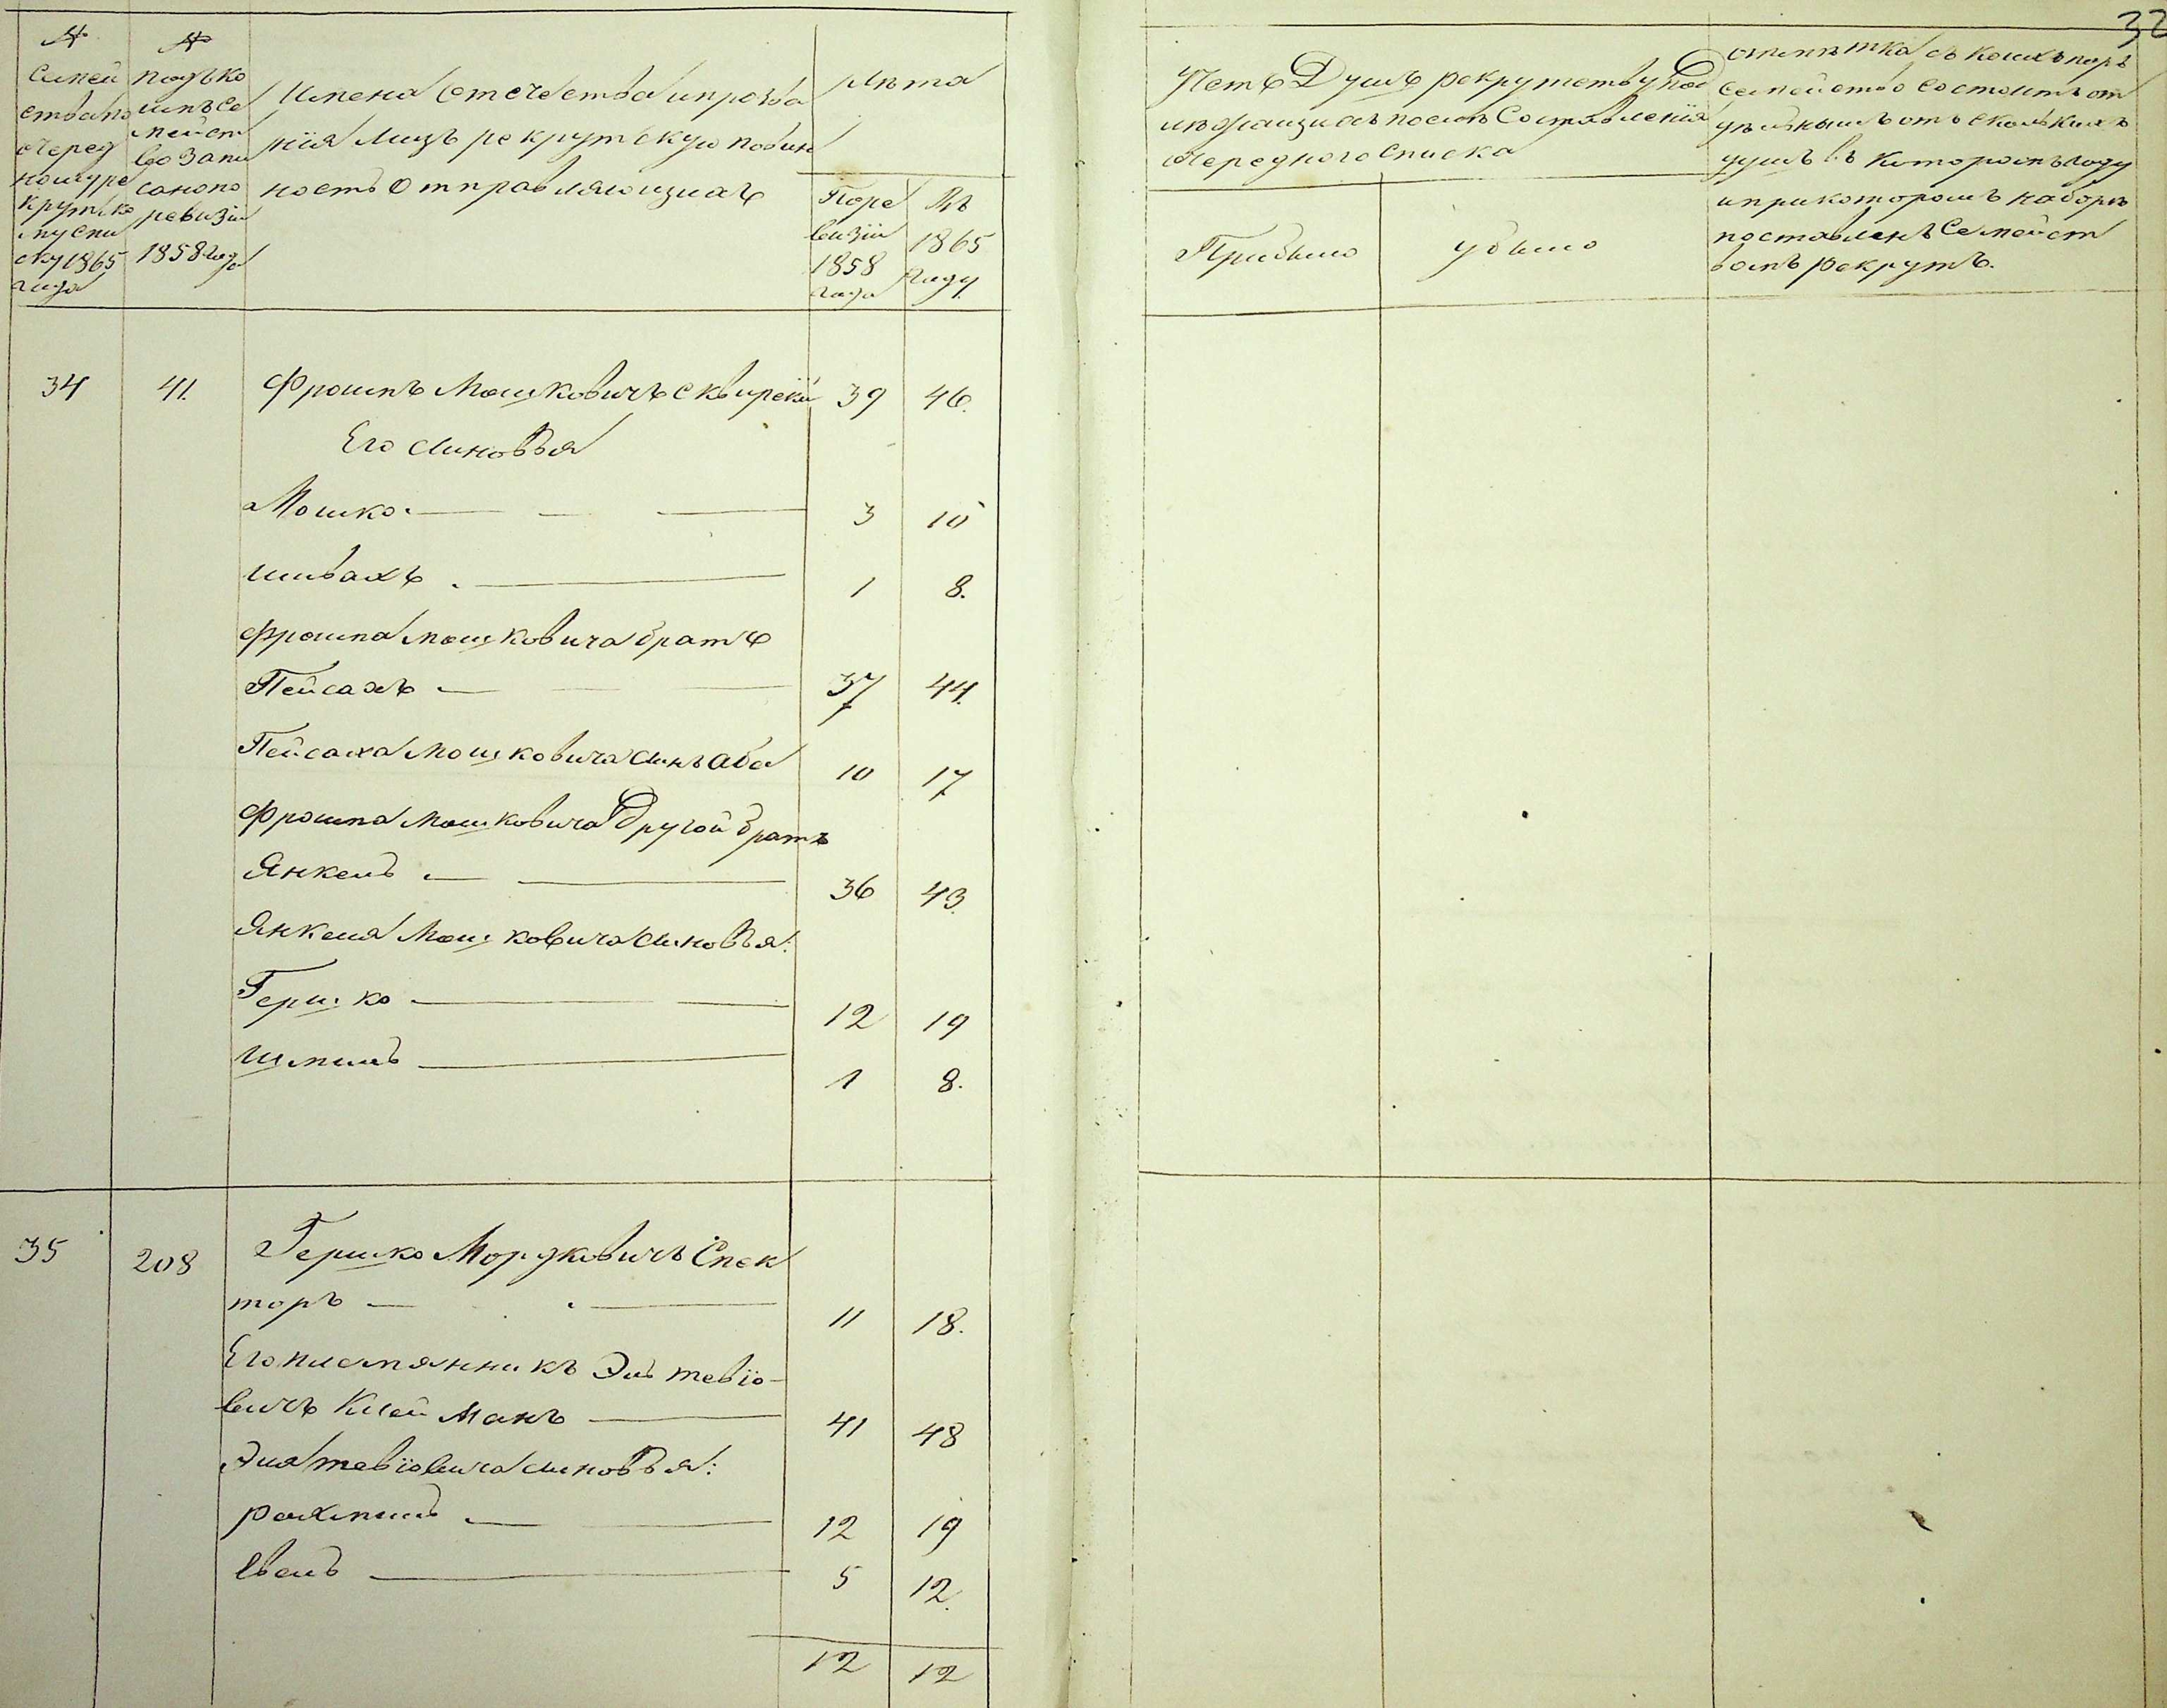 32
№
Семей
ства по
очеред
ному ре
крутско
му спи
ску 1865
года
№
подъко
имъ се
мейст
во запи
сано по
ревизіи
1858 года
Имена Отечества и прозва
нія лицъ рекрутскую повин
ность Отправляющихъ
Лѣта
Поре
визіи
1858
года
Въ
1865
году
Четъ Душъ рекрутству под
лѣжащихъ послѣ Составленія
очереднаго Списка
Прибыло
убыло
отмѣтка съ коихъ поръ
семейство состоитъ от
дѣльнымъ отъ сколькихъ
душъ въ Которомъ году
и при которомъ наборѣ
поставленъ Семейст
вомъ рекрутъ.
34 41. Фроимъ Мошковичъ сквирскій 39 46.
Его Синовъя
Мошко 3 10
Шивахъ 1 8.
Фроима Мошковича братъ
Пейсахъ 37 44.
Пейсаха Мошковича синъ аба 10 17
Фроима Мошковича Другой братъ
Янкель 36 43.
Янкеля Мошковича Синовъя:
Гершко 12 19
Шмиль 1 8.
35 208 Гершко Мордковичъ Спек
торъ 11 18.
Его племянникъ Эль тевіо-
вичъ Клейманъ 41 48
Эля тевіовича Синовъя:
Рахмиль 12 19
Евель 5 12.
12 12